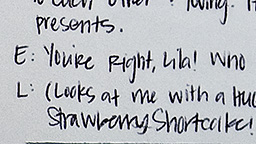 to each other + loving. It
presents.
E: You're Right, Lila! Who
L: (Looks at me with a hug
Strawberry Shortcake!